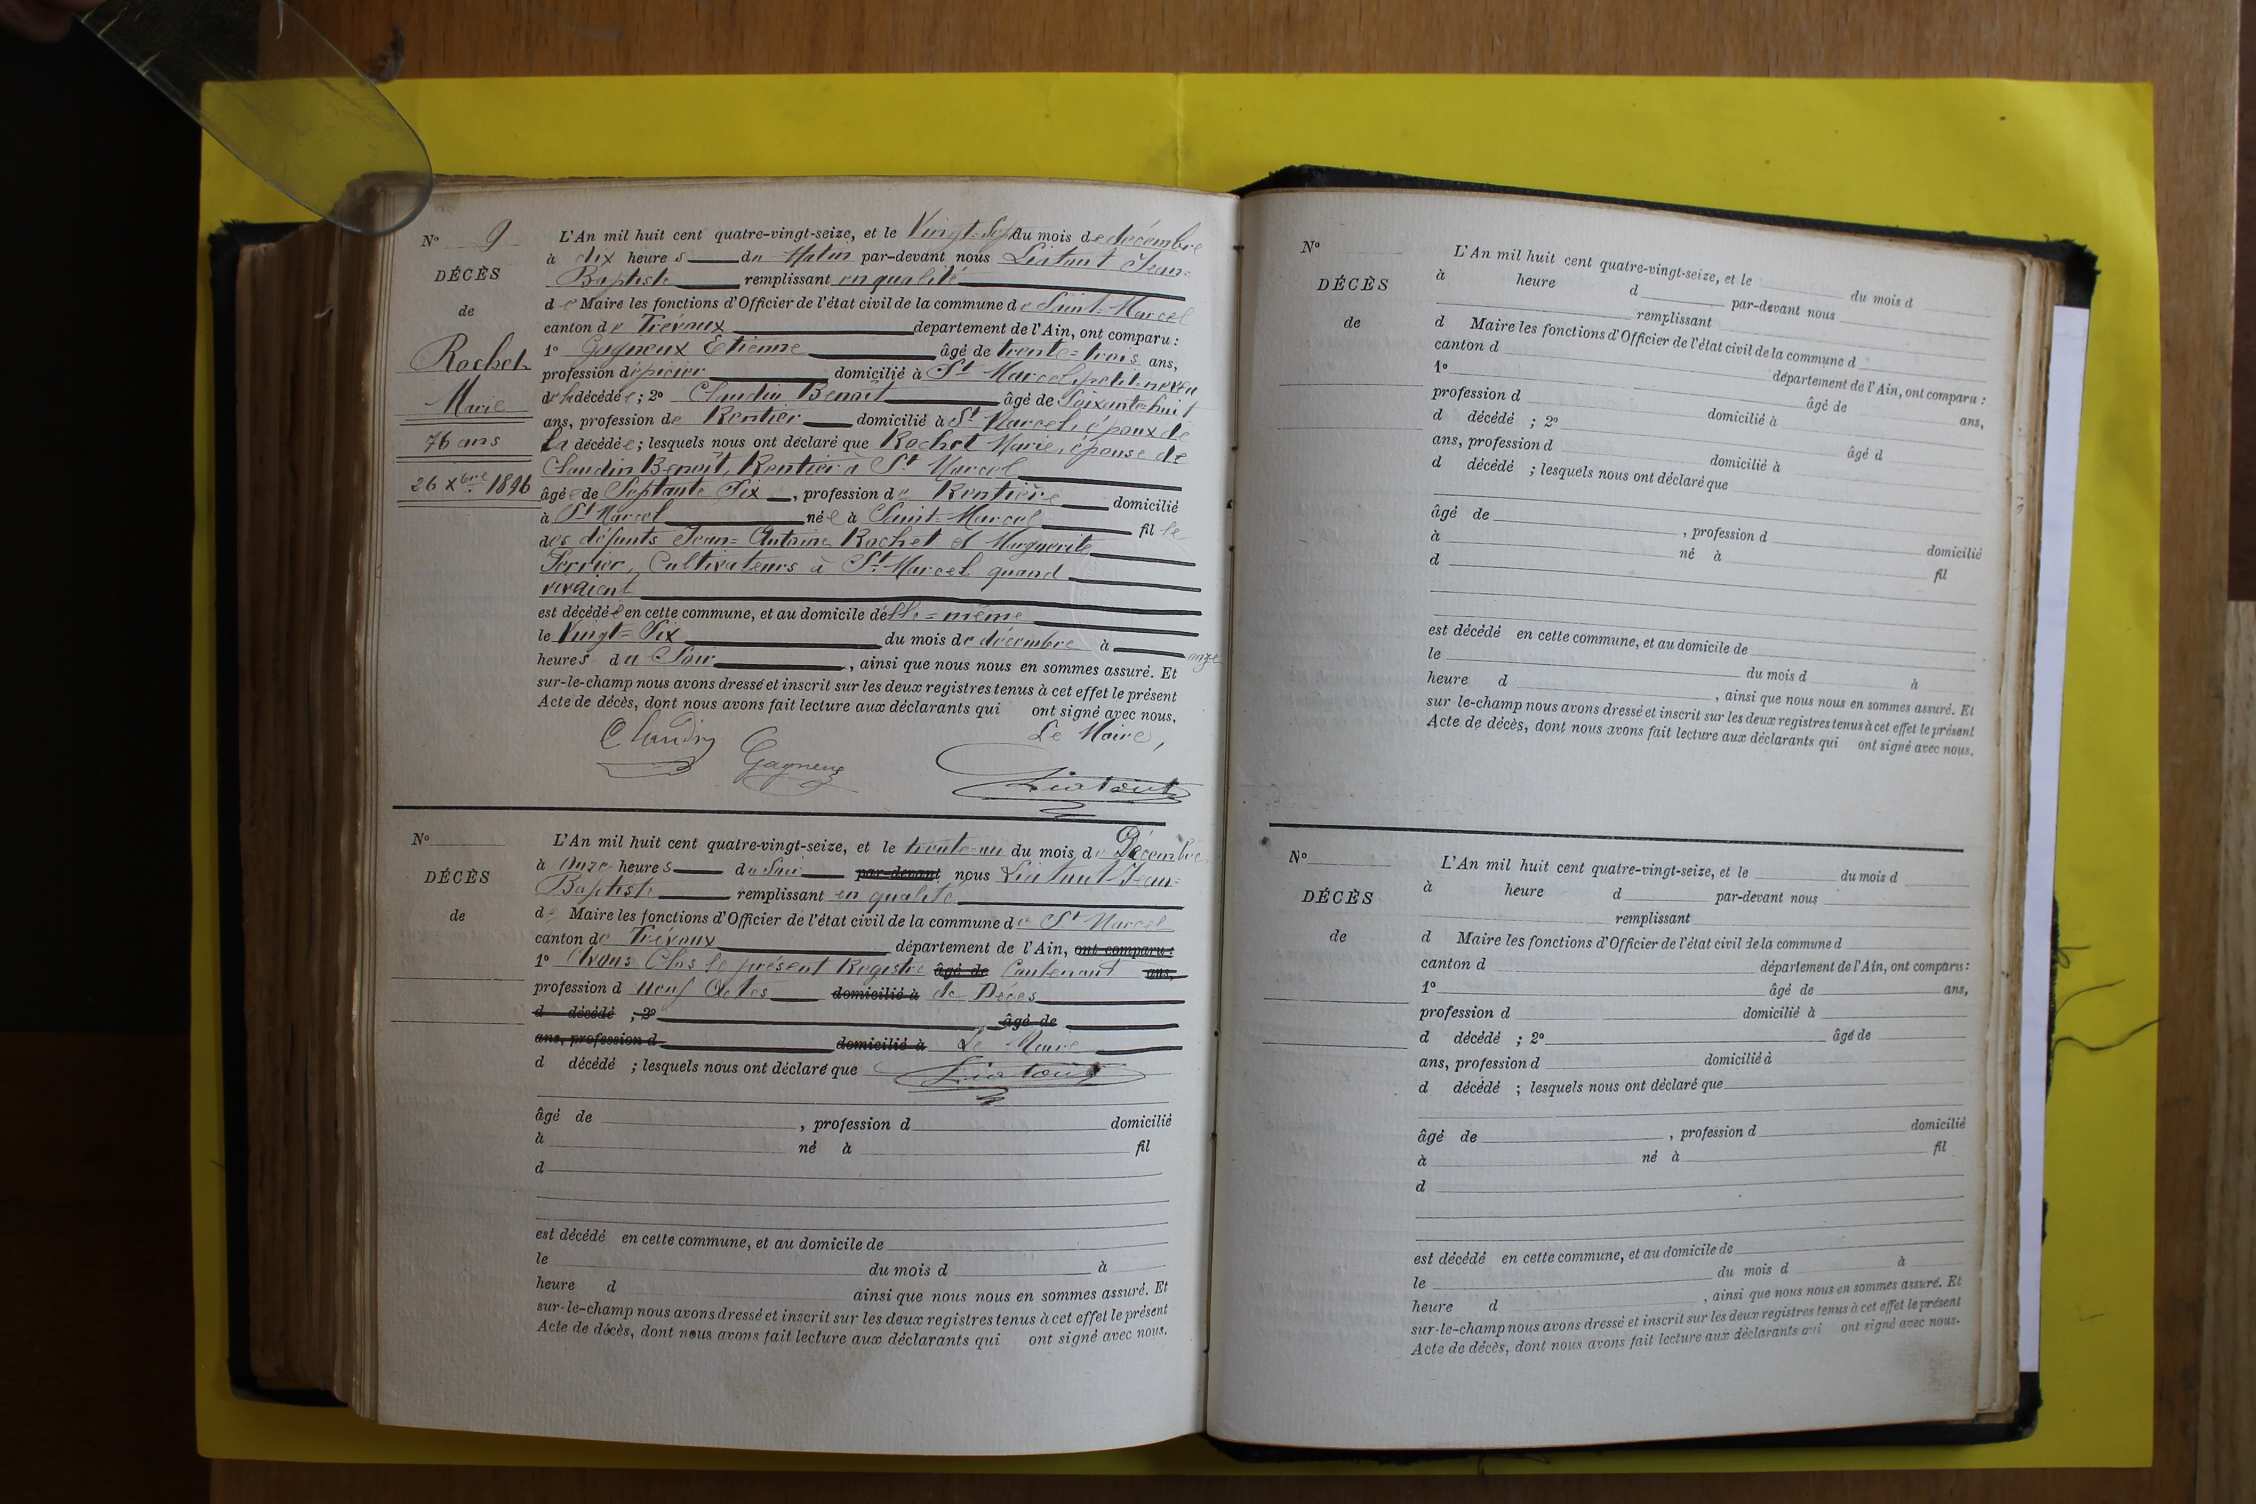 N° 9
DÉCÈS
de
Rochet
Marie
76 ans
26 Xbre 1896
L'An mil huit cent quatre-vingt-seize, et le Vingt-Sept du mois de décembre
à dix heures du Matin par-devant nous Liatout Jean-
Baptiste remplissant en qualité
de Maire les fonctions d'Officier de l'état civil de la commune de Saint-Marcel
canton de Trévoux département de l'Ain, ont comparu :
1° Gagneux Etienne âgé de trente-trois ans,
profession d'épicier domicilié à St Marcel, petit-neveu
de la décédée ; 2° Claudin Benoît âgé de Soixante-huit
ans, profession de Rentier domicilié à St Marcel, époux de
la décédée ; lesquels nous ont déclaré que Rochet Marie, épouse de
Claudin Benoît, Rentier à St Marcel
âgée de Septante Six, profession de Rentière domicilié
à St Marcel née à Saint-Marcel fille
des défunts Jean-Antoine Rochet et Marguerite
Perrier, Cultivateurs à St Marcel quand
vivaient
est décédée en cette commune, et au domicile d'Elle-même
le Vingt-Six du mois de décembre à onze
heures du Soir, ainsi que nous nous en sommes assuré. Et
sur-le-champ nous avons dressé et inscrit sur les deux registres tenus à cet effet le présent
Acte de décès, dont nous avons fait lecture aux déclarants qui ont signé avec nous,
Le Maire,
Claudin Gagneux Liatout
N°
DÉCÈS
de
L'An mil huit cent quatre-vingt-seize, et le trente-un du mois de Décembre
à Onze heures du Soir par-devant nous Liatout Jean-
Baptiste remplissant en qualité
de Maire les fonctions d'Officier de l'état civil de la commune de St Marcel
canton de Trévoux département de l'Ain, ont comparu :
1° Avons Clos le présent Registre âgé de Contenant ans,
profession d neuf Actes domicilié à de Décès
d décédé ; 2° âgé de
ans, profession d domicilié à Le Maire
d décédé ; lesquels nous ont déclaré que Liatout
âgé de , profession d domicilié
à né à fil
d
est décédé en cette commune, et au domicile de
le du mois d à
heure d ainsi que nous nous en sommes assuré. Et
sur-le-champ nous avons dressé et inscrit sur les deux registres tenus à cet effet le présent
Acte de décès, dont nous avons fait lecture aux déclarants qui ont signé avec nous.
N°
DÉCÈS
de
L'An mil huit cent quatre-vingt-seize, et le du mois d
à heure d par-devant nous
remplissant
d Maire les fonctions d'Officier de l'état civil de la commune d
canton d département de l'Ain, ont comparu :
1° âgé de ans,
profession d domicilié à
d décédé ; 2° âgé d
ans, profession d domicilié à
d décédé ; lesquels nous ont déclaré que
âgé de , profession d domicilié
à né à fil
d
est décédé en cette commune, et au domicile de
le du mois d à
heure d , ainsi que nous nous en sommes assuré. Et
sur le-champ nous avons dressé et inscrit sur les deux registres tenus à cet effet le présent
Acte de décès, dont nous avons fait lecture aux déclarants qui ont signé avec nous.
N°
DÉCÈS
de
L'An mil huit cent quatre-vingt-seize, et le du mois d
à heure d par-devant nous
remplissant
d Maire les fonctions d'Officier de l'état civil de la commune d
canton d département de l'Ain, ont comparu :
1° âgé de ans,
profession d domicilié à
d décédé ; 2° âgé de
ans, profession d domicilié à
d décédé ; lesquels nous ont déclaré que
âgé de , profession d domicilié
à né à fil
d
est décédé en cette commune, et au domicile de
le du mois d à
heure d , ainsi que nous nous en sommes assuré. Et
sur-le-champ nous avons dressé et inscrit sur les deux registres tenus à cet effet le présent
Acte de décès, dont nous avons fait lecture aux déclarants qui ont signé avec nous.